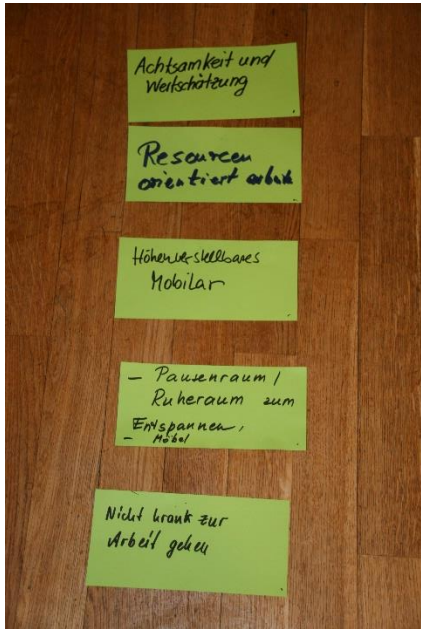 Achtsamkeit und
Wertschätzung
Resourcen
orientiert arbeiten
Höhenverstellbares
Mobilar
– Pausenraum /
Ruheraum zum
Entspannen,
– Möbel
Nicht krank zur
Arbeit gehen